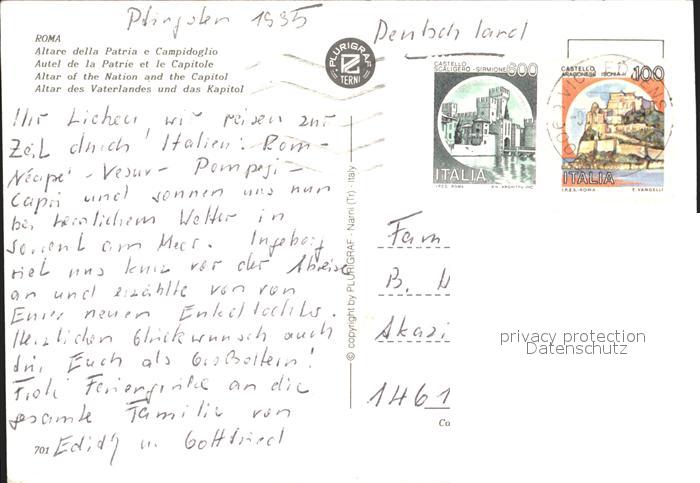 Pfingsten 1995
ROMA
Altare della Patria e Campidoglio
Autel de la Patrie et le Capitole
Altar of the Nation and the Capitol
Altar des Vaterlandes und das Kapitol
PLURIGRAF
TERNI
Deutschland
CASTELLO SCALIGERO - SIRMIONE 600
ITALIA
I.P.Z.S. ROMA
CASTELLO ARAGONESE ISCHIA 100
ITALIA
I.P.Z.S. - ROMA E. VANGELLI
Ihr Lieben wir reisen zur
Zeit durch Italien: Rom -
Neapel - Vesuv - Pompeji -
Capri und sonnen uns nun
bei herrlichem Wetter in
Sorrent am Meer. Ingeborg
rief uns kurz vor der Abreise
an und erzählte von
Eurer neuen Enkeltochter.
Herzlichen Glückwunsch auch
Euch als Großeltern!
Frohe Feriengrüße an die
gesamte Familie von
701 Edith u. Gottfried
© copyright by PLURIGRAF - Narni (Tr) - Italy
Fam
B. H
Akazi
1461
Co
privacy protection
Datenschutz